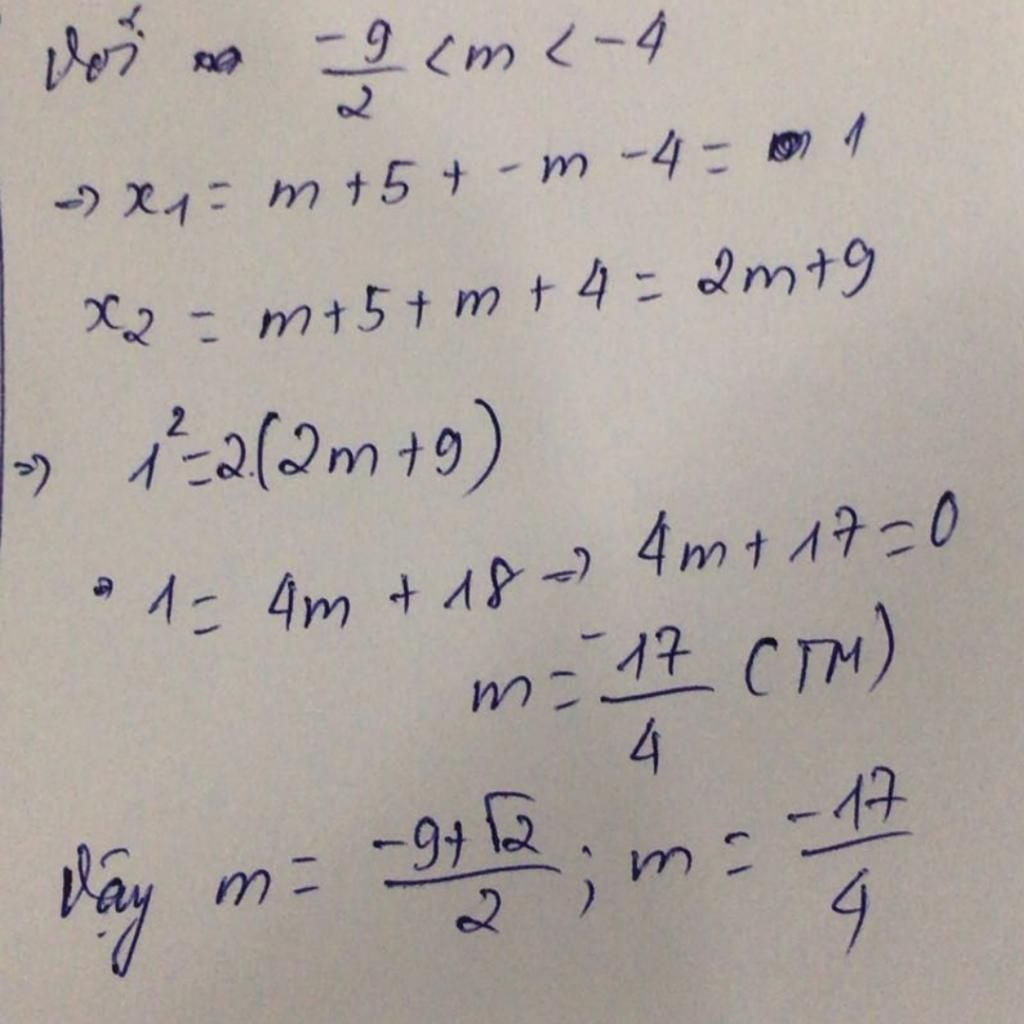 Với -9/2 < m < -4
=> x₁ = m + 5 + - m - 4 = 1
x₂ = m + 5 + m + 4 = 2m + 9
=> 1² = 2.(2m + 9)
=> 1 = 4m + 18 => 4m + 17 = 0
m = -17/4 (TM)
Vậy m = (-9 + √2)/2 ; m = -17/4